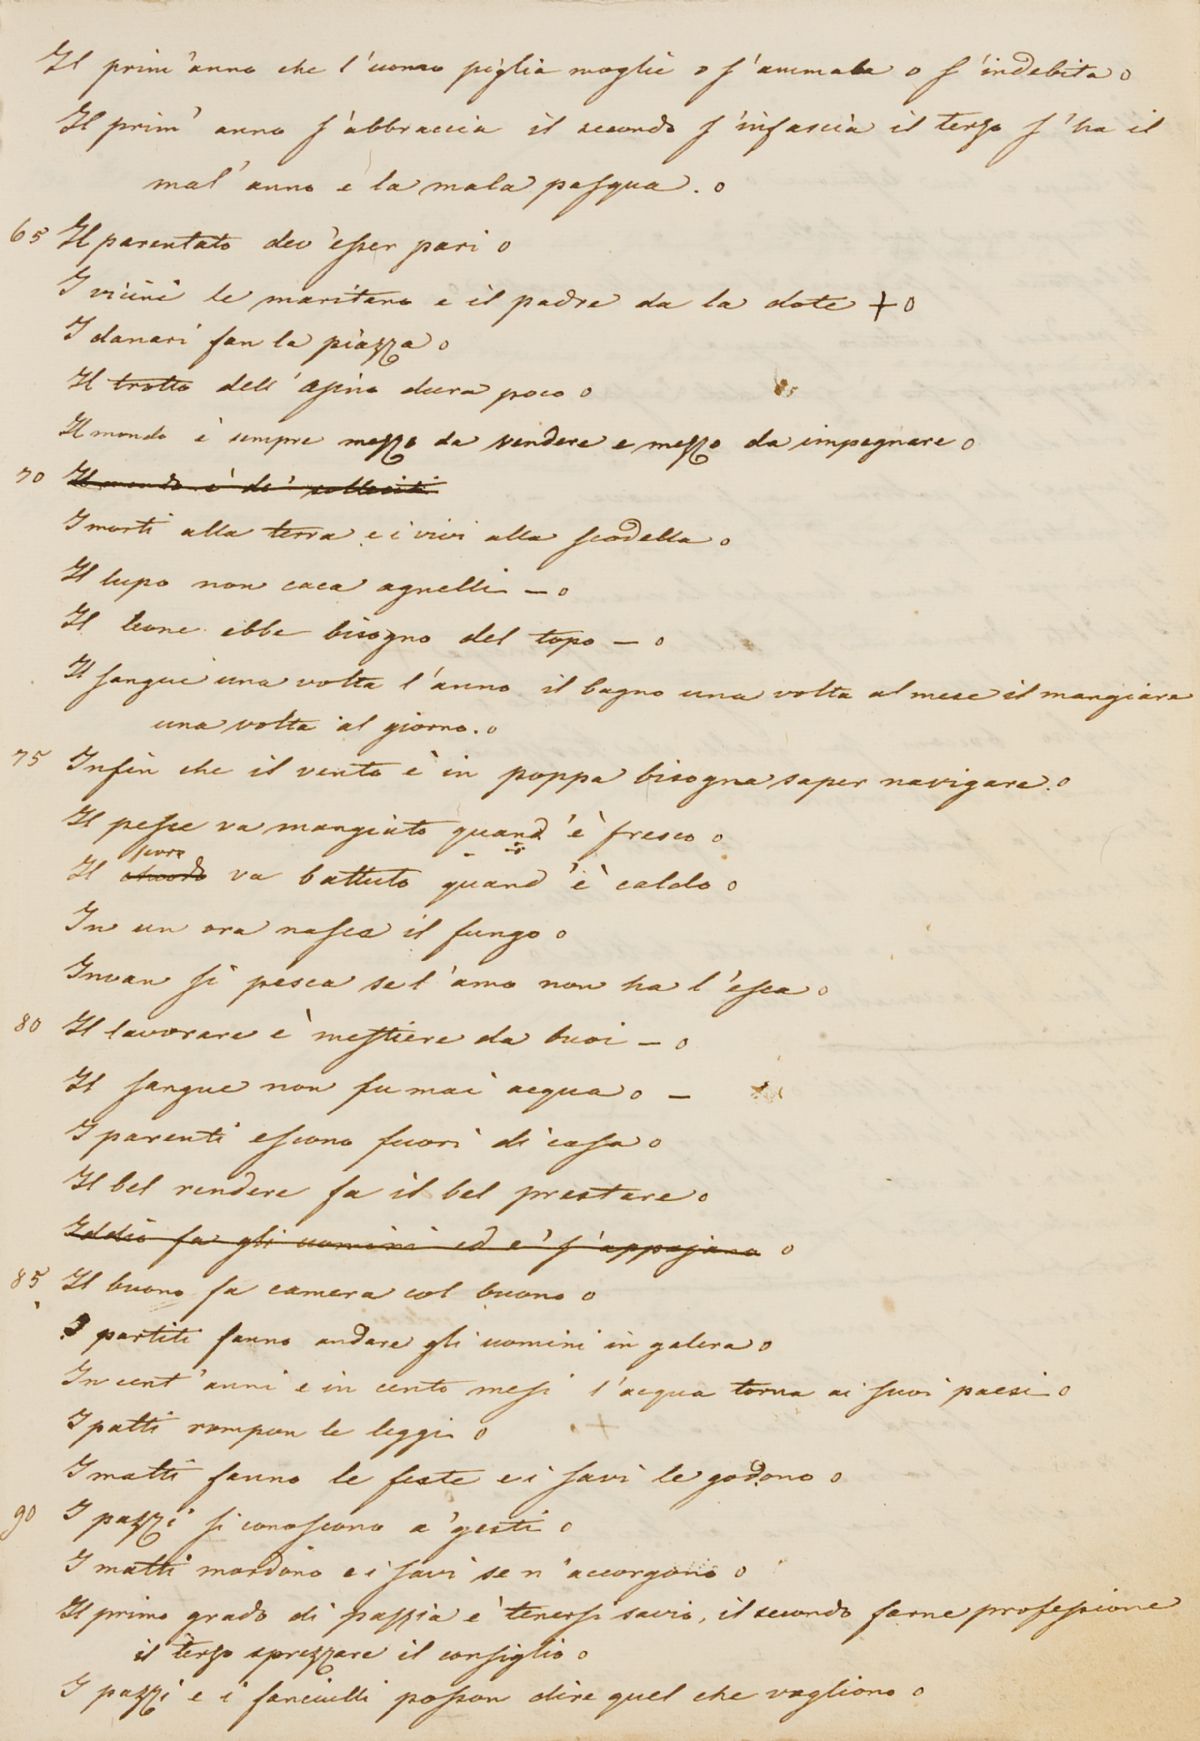 Il prim'anno che l'uomo piglia moglie o s'ammala o s'indebita o
Il prim' anno s'abbraccia il secondo s'infascia il terzo s'ha il
mal' anno e la mala pasqua. o
65 Il parentato dev'esser pari o
I vicini le maritano e il padre da la dote + o
I danari fan la piazza o
Il trotto dell'asino dura poco o
Il mondo è sempre mezzo da vendere e mezzo da impegnare o
70 Il mondo è de' solleciti
I morti alla terra e i vivi alla scodella o
Il lupo non caca agnelli – o
Il leone ebbe bisogno del topo – o
Il sangue una volta l'anno il bagno una volta al mese il mangiare
una volta al giorno. o
75 Infin che il vento è in poppa bisogna saper navigare. o
Il pesce va mangiato quand'è fresco o
ferro
Il chiodo va battuto quand'è caldo o
In un ora nasce il fungo o
Invan si pesca se l'amo non ha l'esca o
80 Il lavorare è mestiere da buoi – o
Il sangue non fu mai acqua o –
I parenti escono fuori di casa o
Il bel rendere fa il bel prestare o
Iddio fa gli uomini ed e' s'appajano o
85 Il buono fa camera col buono o
I partiti fanno andare gli uomini in galera o
In cent'anni e in cento mesi l'acqua torna ai suoi paesi o
I patti rompon le leggi o
I matti fanno le feste e i savi le godono o
90 I pazzi si conoscono a' gesti o
I matti mordono e i savi se n'accorgono o
Il primo grado di pazzia è tenersi savio, il secondo farne professione
il terzo sprezzare il consiglio o
I pazzi e i fanciulli posson dire quel che vogliono o